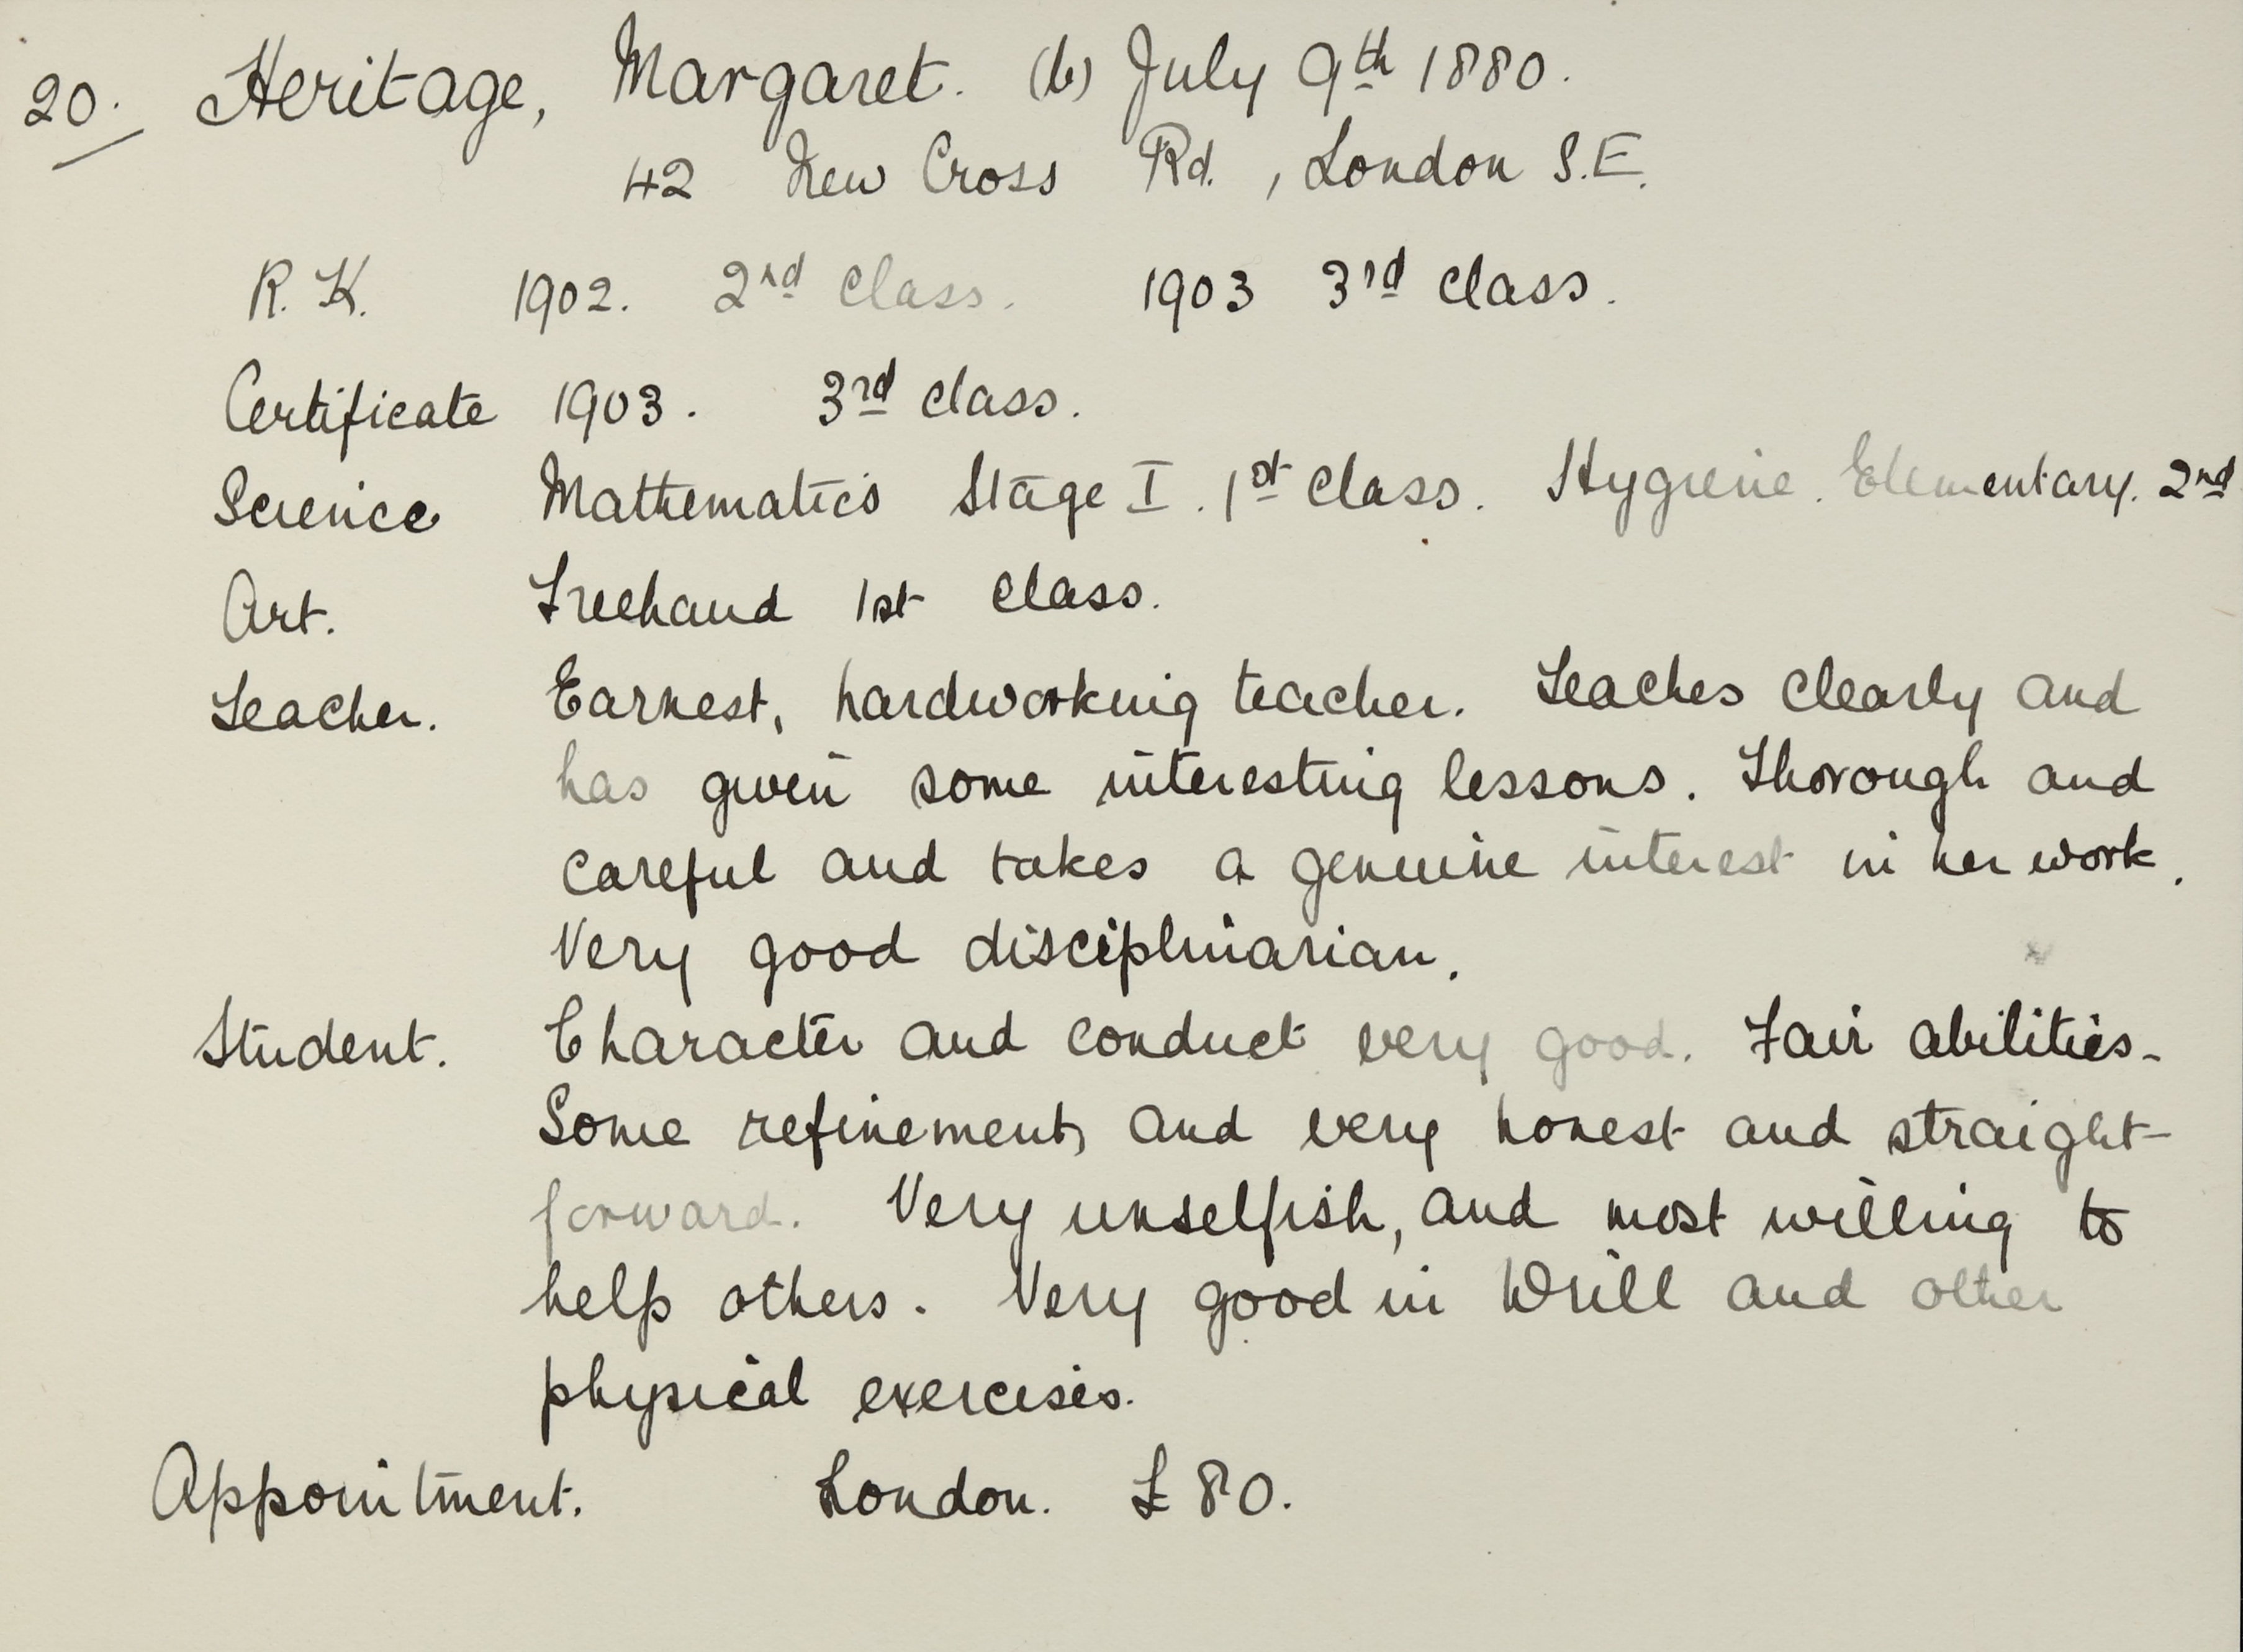 20. Heritage, Margaret. (b) July 9th 1880.
42 New Cross Rd., London S.E.
R.K. 1902. 2nd class. 1903 3rd class.
Certificate 1903. 3rd class.
Science Mathematics Stage I. 1st class. Hygiene. Elementary. 2nd
Art. Freehand 1st class.
Teacher. Earnest, hardworking teacher. Teaches clearly and
has given some interesting lessons. Thorough and
careful and takes a genuine interest in her work.
Very good disciplinarian.
Student. Character and conduct very good. Fair abilities.
Some refinement, and very honest and straight-
forward. Very unselfish, and most willing to
help others. Very good in Drill and other
physical exercises.
Appointment. London. £80.